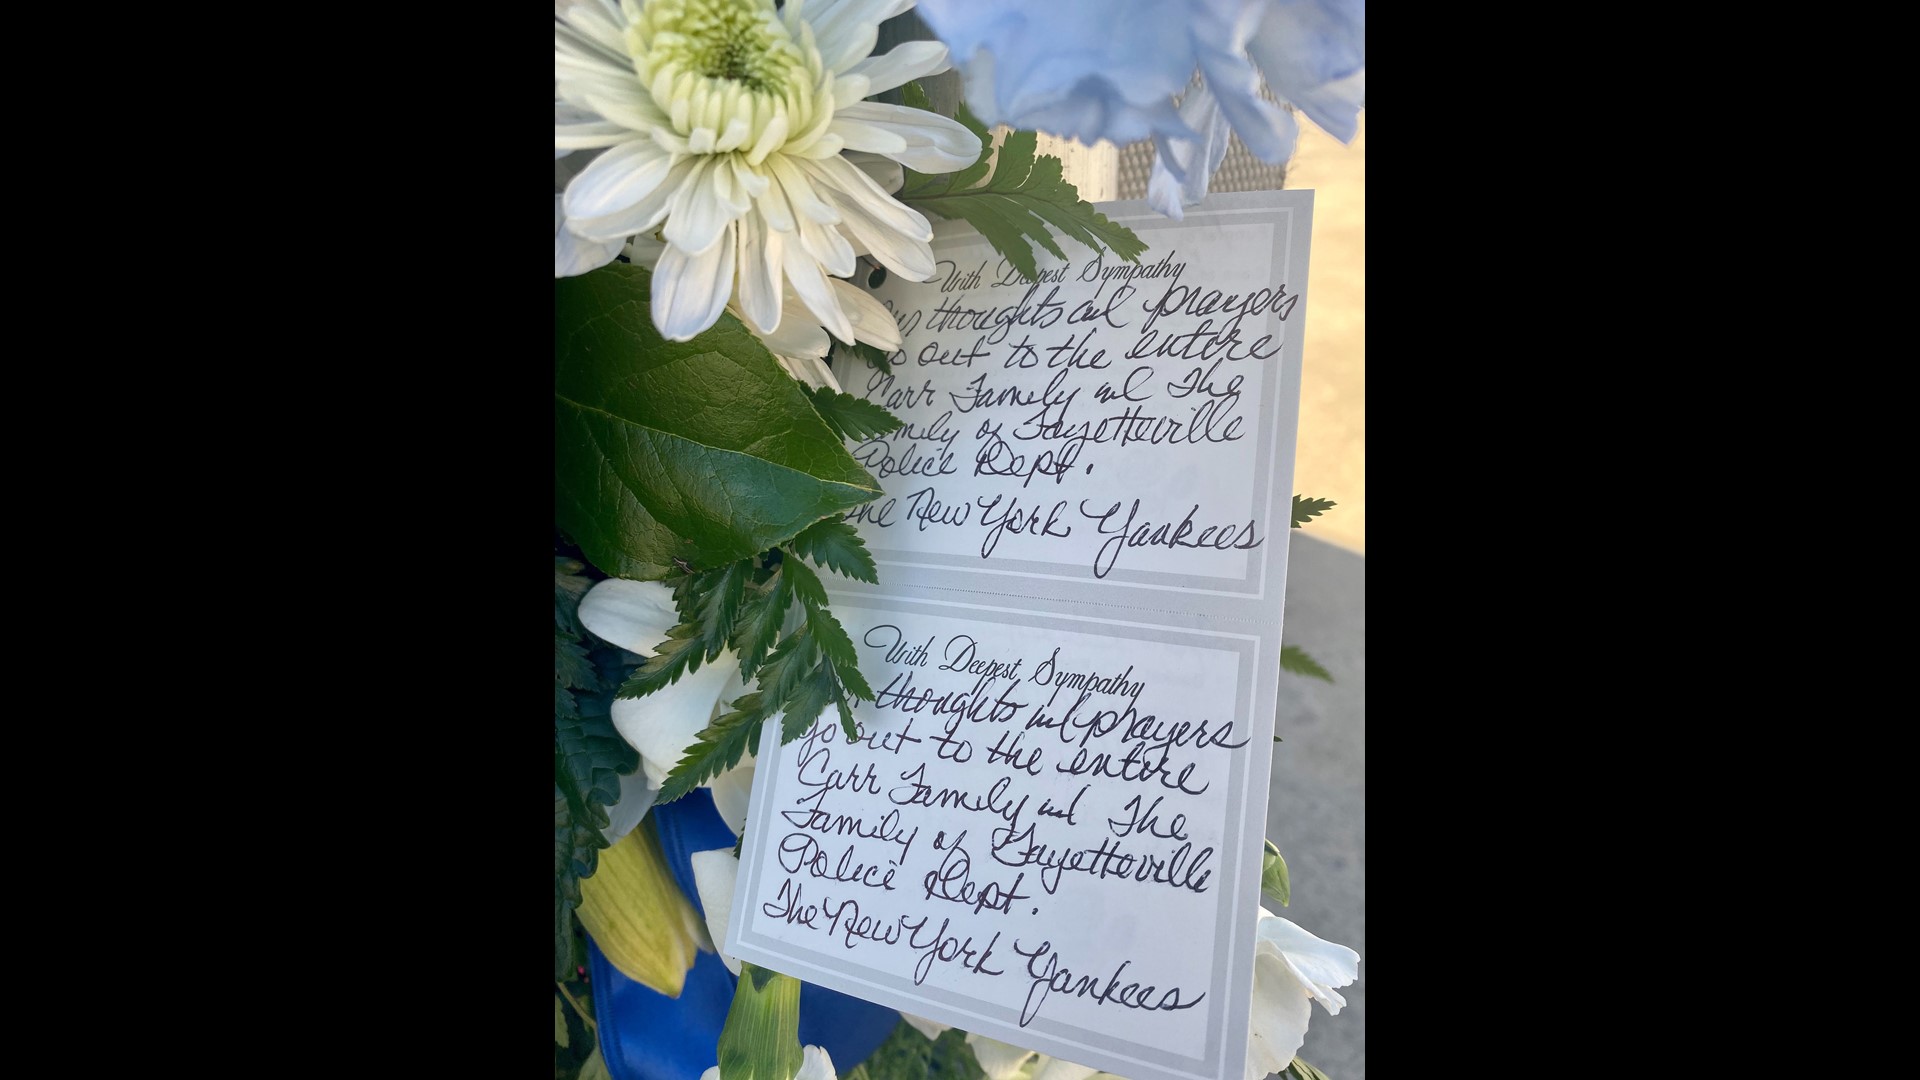 With Deepest Sympathy
thoughts and prayers
out to the entire
Carr Family and The
Family of Fayetteville
Police Dept.
The New York Yankees
With Deepest Sympathy
thoughts and prayers
go out to the entire
Carr Family and The
Family of Fayetteville
Police Dept.
The New York Yankees